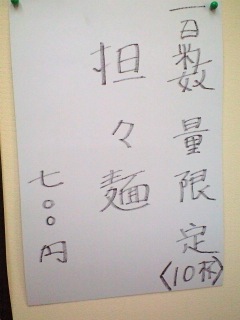 一日数量限定
〈10杯〉
担々麺
七〇〇円